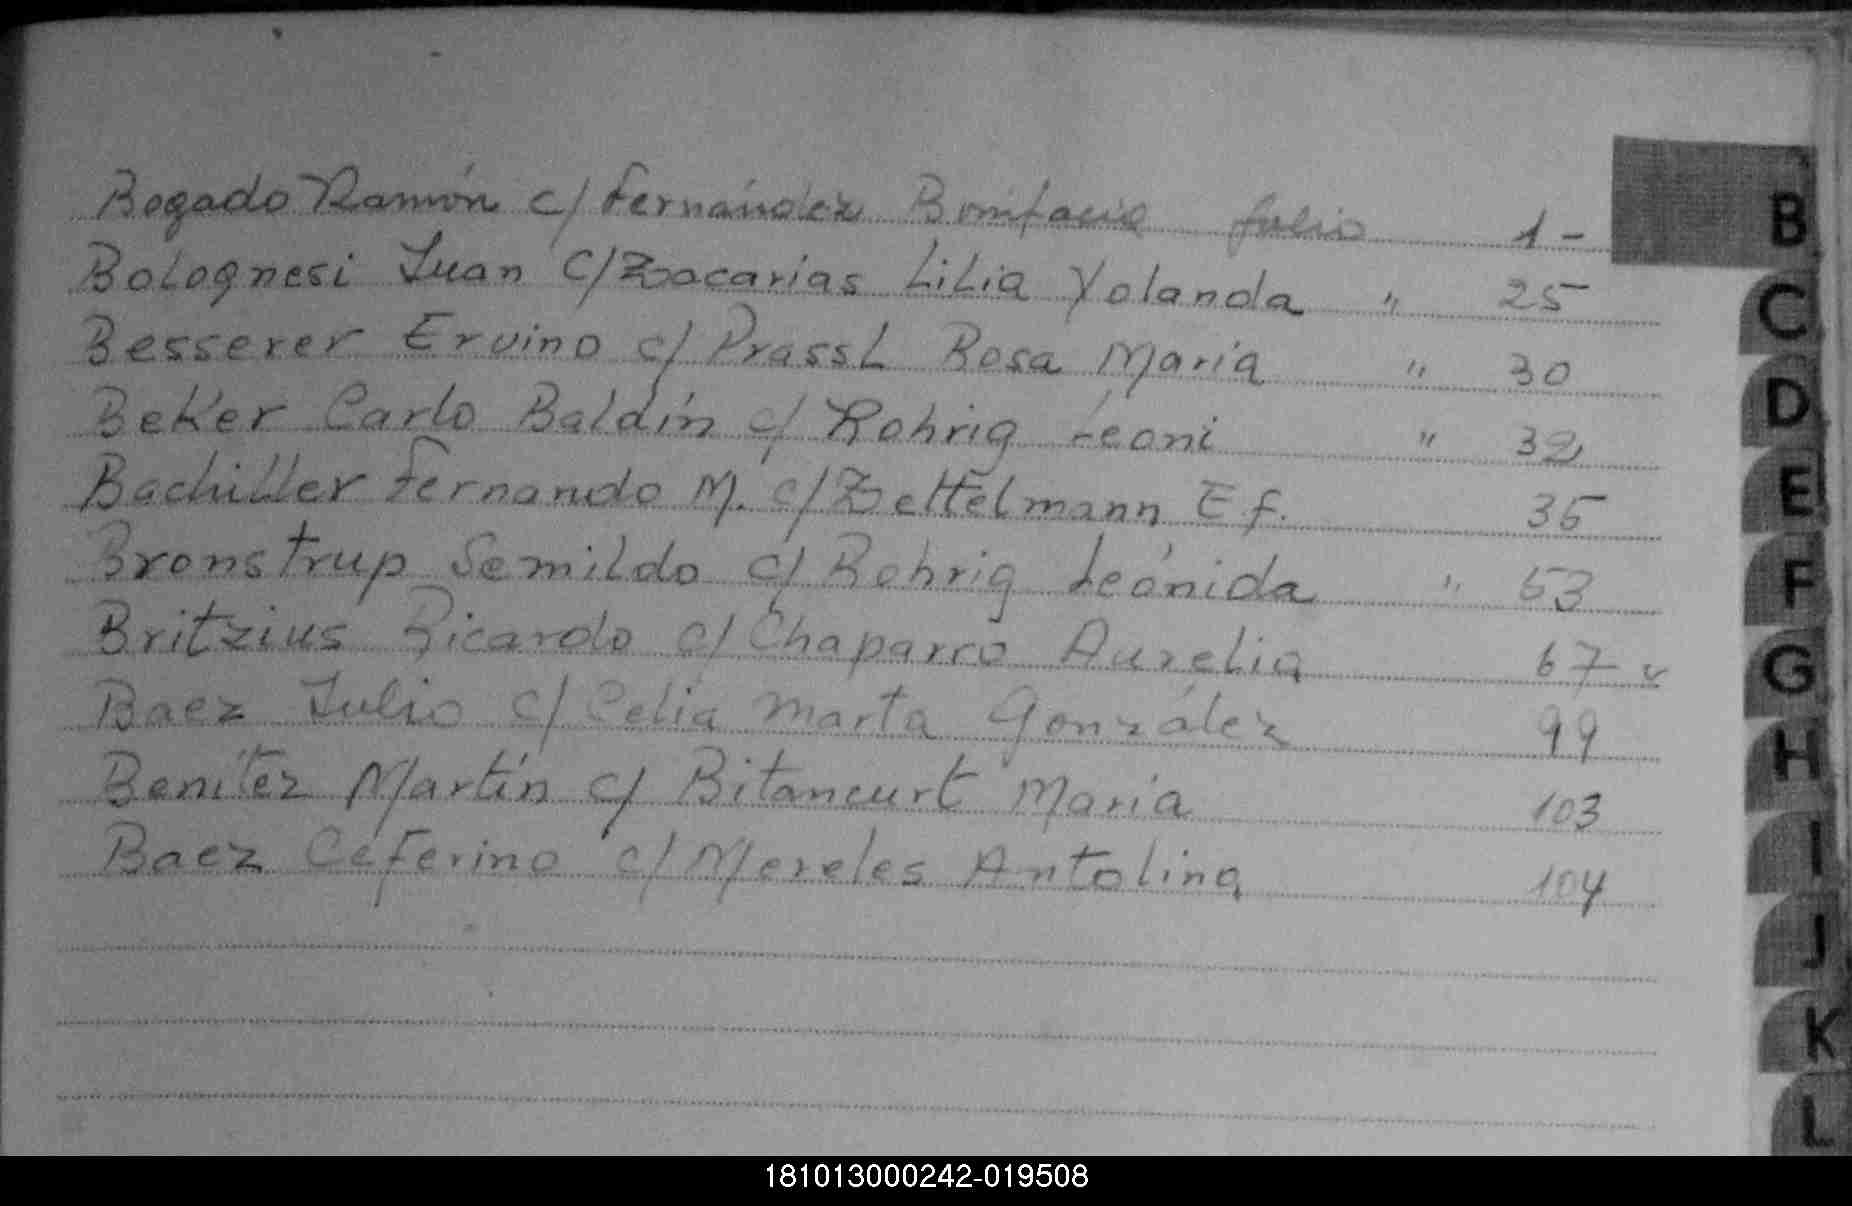 Bogado Ramón c/ Fernández Bonifacia folio 1 -
Bolognesi Juan c/ Zacarías Lilia Yolanda " 25
Besserer Ervino c/ Prassl Rosa María " 30
Beker Carlo Baldín c/ Rohrig Leoni " 32
Bachiller Fernando M. c/ Zettelmann E f. 35
Bronstrup Semildo c/ Rohrig Leónida " 53
Britzius Ricardo c/ Chaparro Aurelia 67 v
Baez Julio c/ Celia Marta González 99
Benítez Martín c/ Bitancurt María 103
Baez Ceferino c/ Mereles Antolina 104
B
C
D
E
F
G
H
I
J
K
L
181013000242-019508